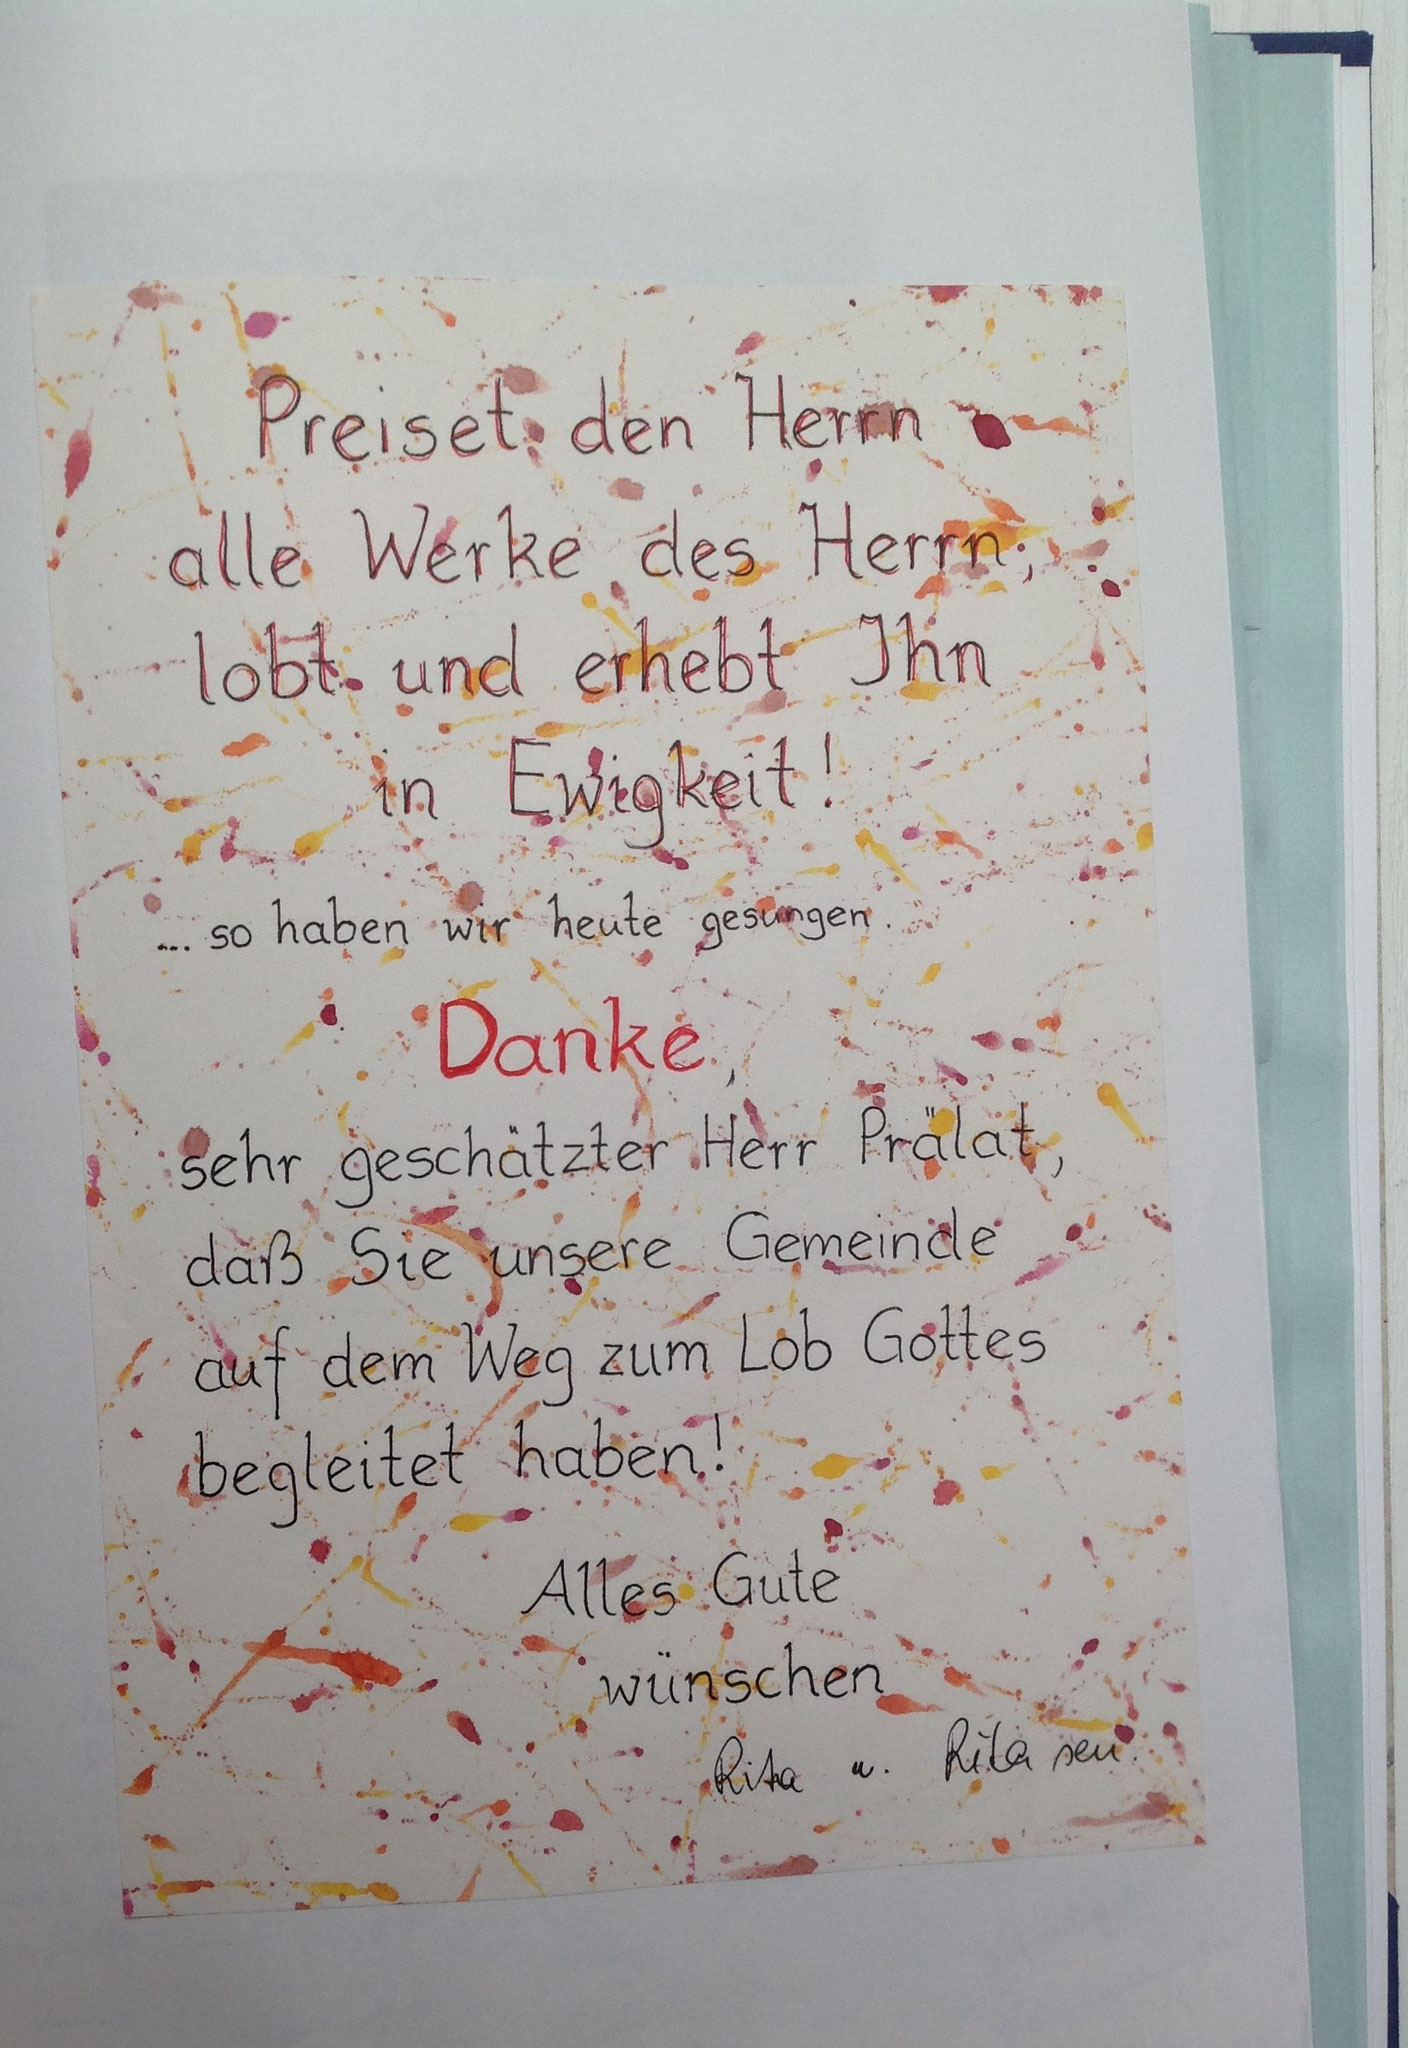 Preiset den Herrn
alle Werke des Herrn;
lobt und erhebt Ihn
in Ewigkeit!
... so haben wir heute gesungen.
Danke,
sehr geschätzter Herr Prälat,
daß Sie unsere Gemeinde
auf dem Weg zum Lob Gottes
begleitet haben!
Alles Gute
wünschen
Rita u. Rita sen.